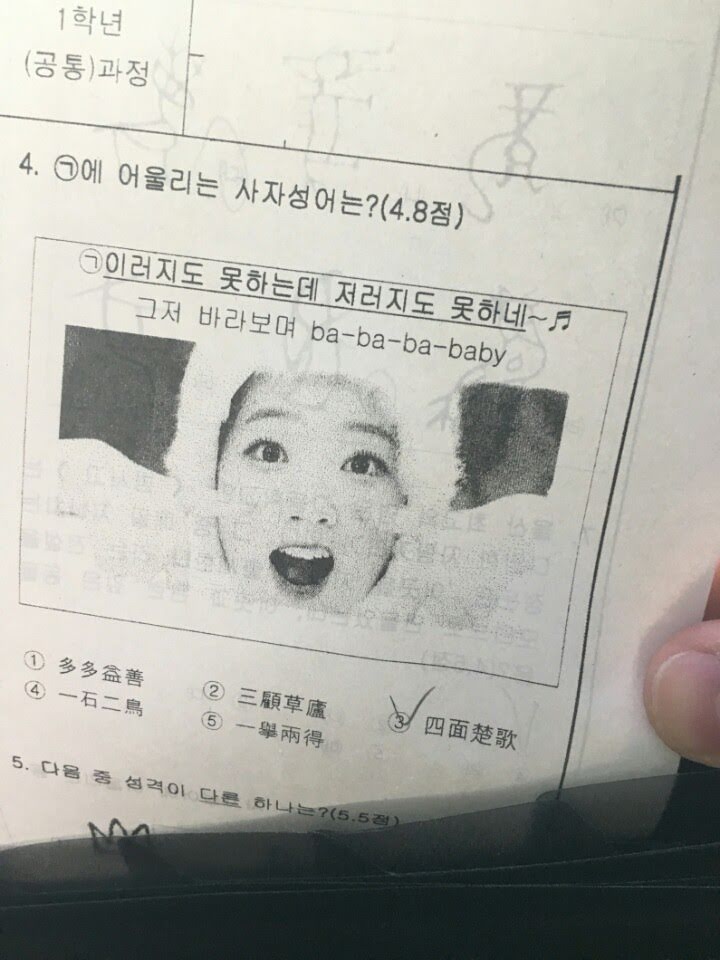 1학년
(공통)과정
4. ㉠에 어울리는 사자성어는?(4.8점)
㉠이러지도 못하는데 저러지도 못하네~♬
그저 바라보며 ba-ba-ba-baby
① 多多益善
② 三顧草廬
③ 四面楚歌
④ 一石二鳥
⑤ 一擧兩得
5. 다음 중 성격이 다른 하나는?(5.5점)